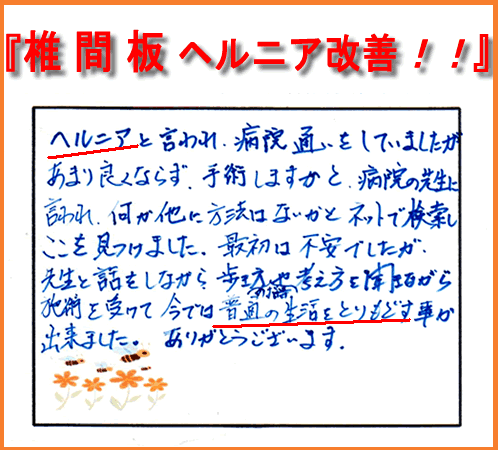 『椎間板 ヘルニア改善！！』
ヘルニアと言われ、病院通いをしていましたが
あまり良くならず、手術しますかと、病院の先生に
言われ、何か他に方法はないかとネットで検索し
ここを見つけました。最初は不安でしたが、
先生と話をしながら、歩き方や考え方を聞きながら
施術を受けて今では普通の生活をとりもどす事が
出来ました。ありがとうございます.